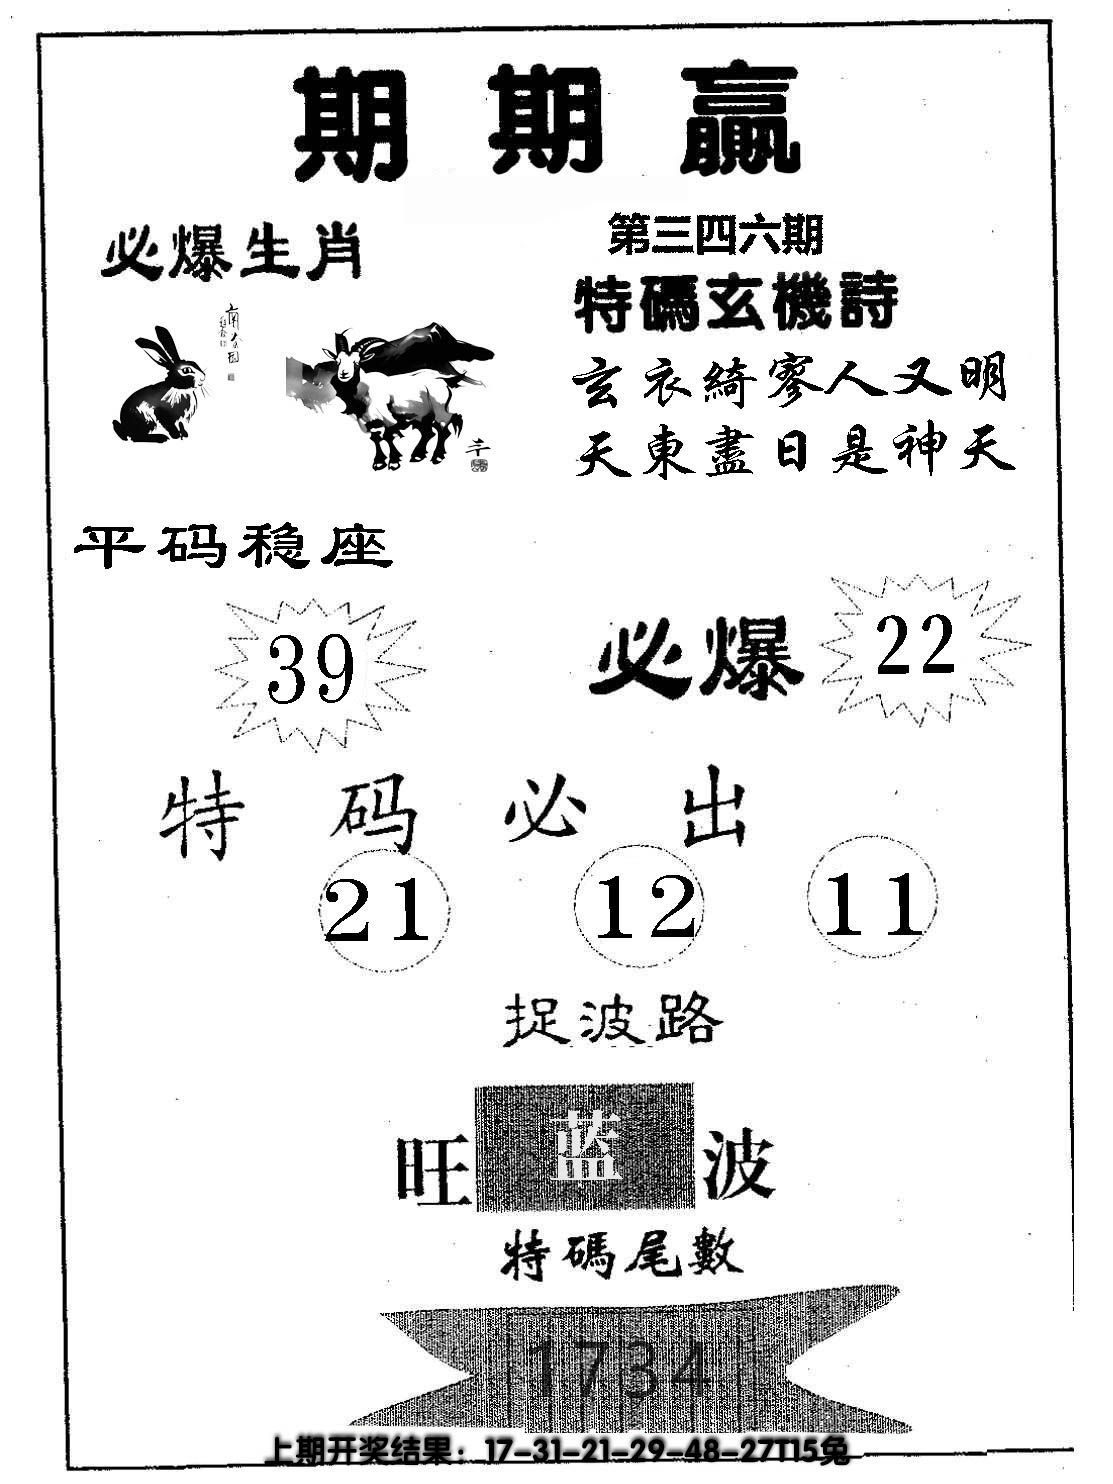 期期赢
第三四六期
必爆生肖
特碼玄機詩
玄衣綺寥人又明
天東盡日是神天
平码稳座
39
必爆
22
特码必出
21 12 11
捉波路
旺 蓝 波
特碼尾數
1734
上期开奖结果：17-31-21-29-48-27T15兔